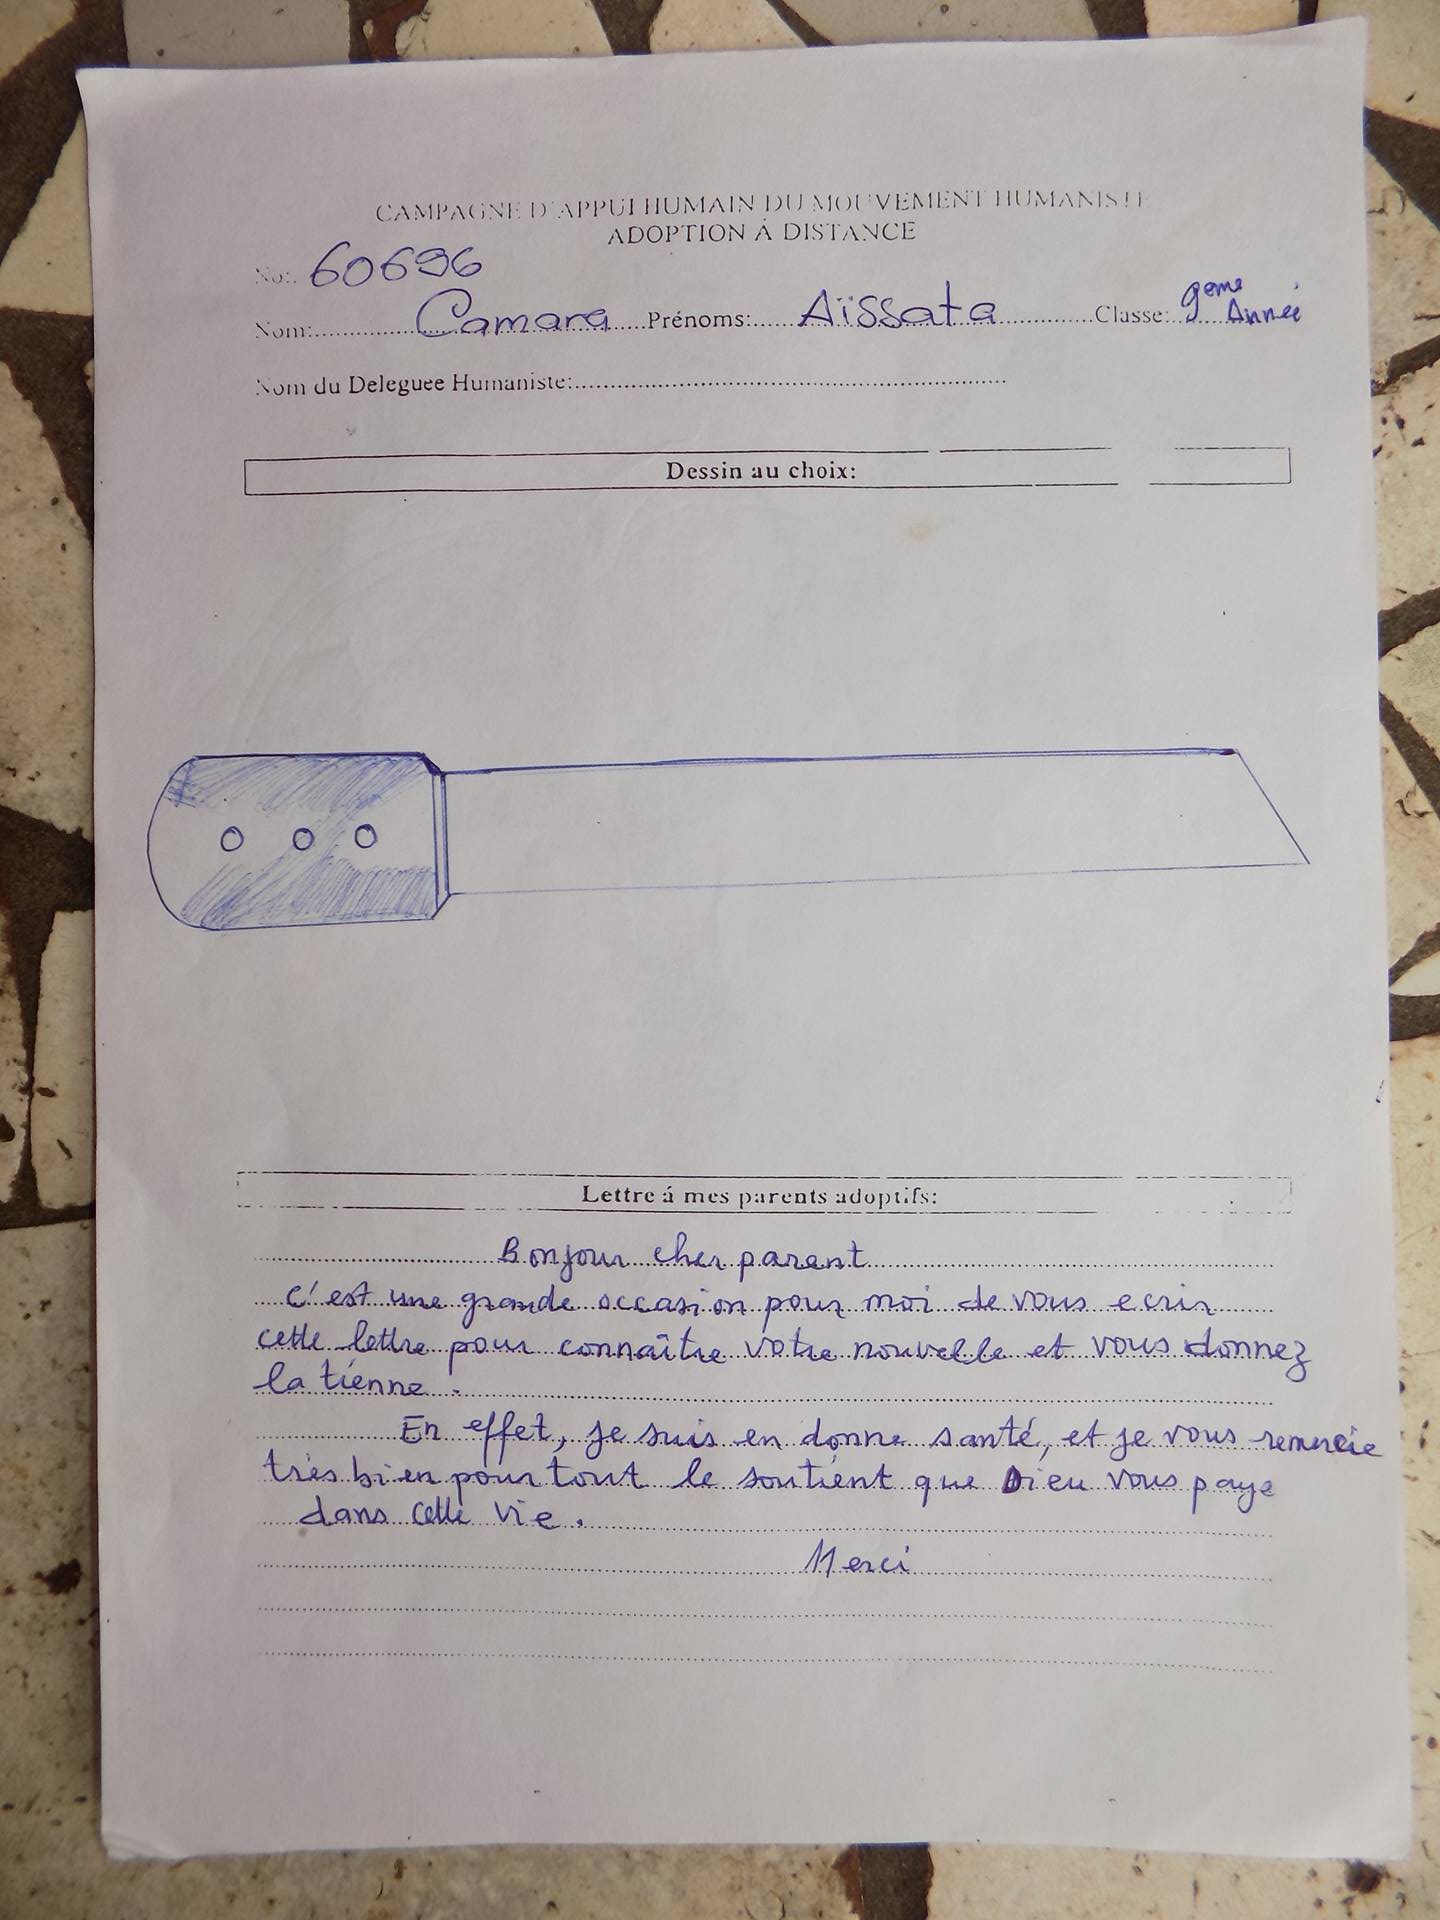 CAMPAGNE D'APPUI HUMAIN DU MOUVEMENT HUMANISTE
ADOPTION Á DISTANCE
No: 60696
Nom: Camara Prénoms: Aïssata Classe: 9eme Année
Nom du Deleguee Humaniste:
Dessin au choix:
Lettre á mes parents adoptifs:
Bonjour cher parent
C'est une grande occasion pour moi de vous ecrir
cette lettre pour connaître votre nouvelle et vous donnez
la tienne.
En effet, je suis en donne santé, et je vous remercie
très bien pour tout le soutient que Dieu vous paye
dans cette vie.
Merci